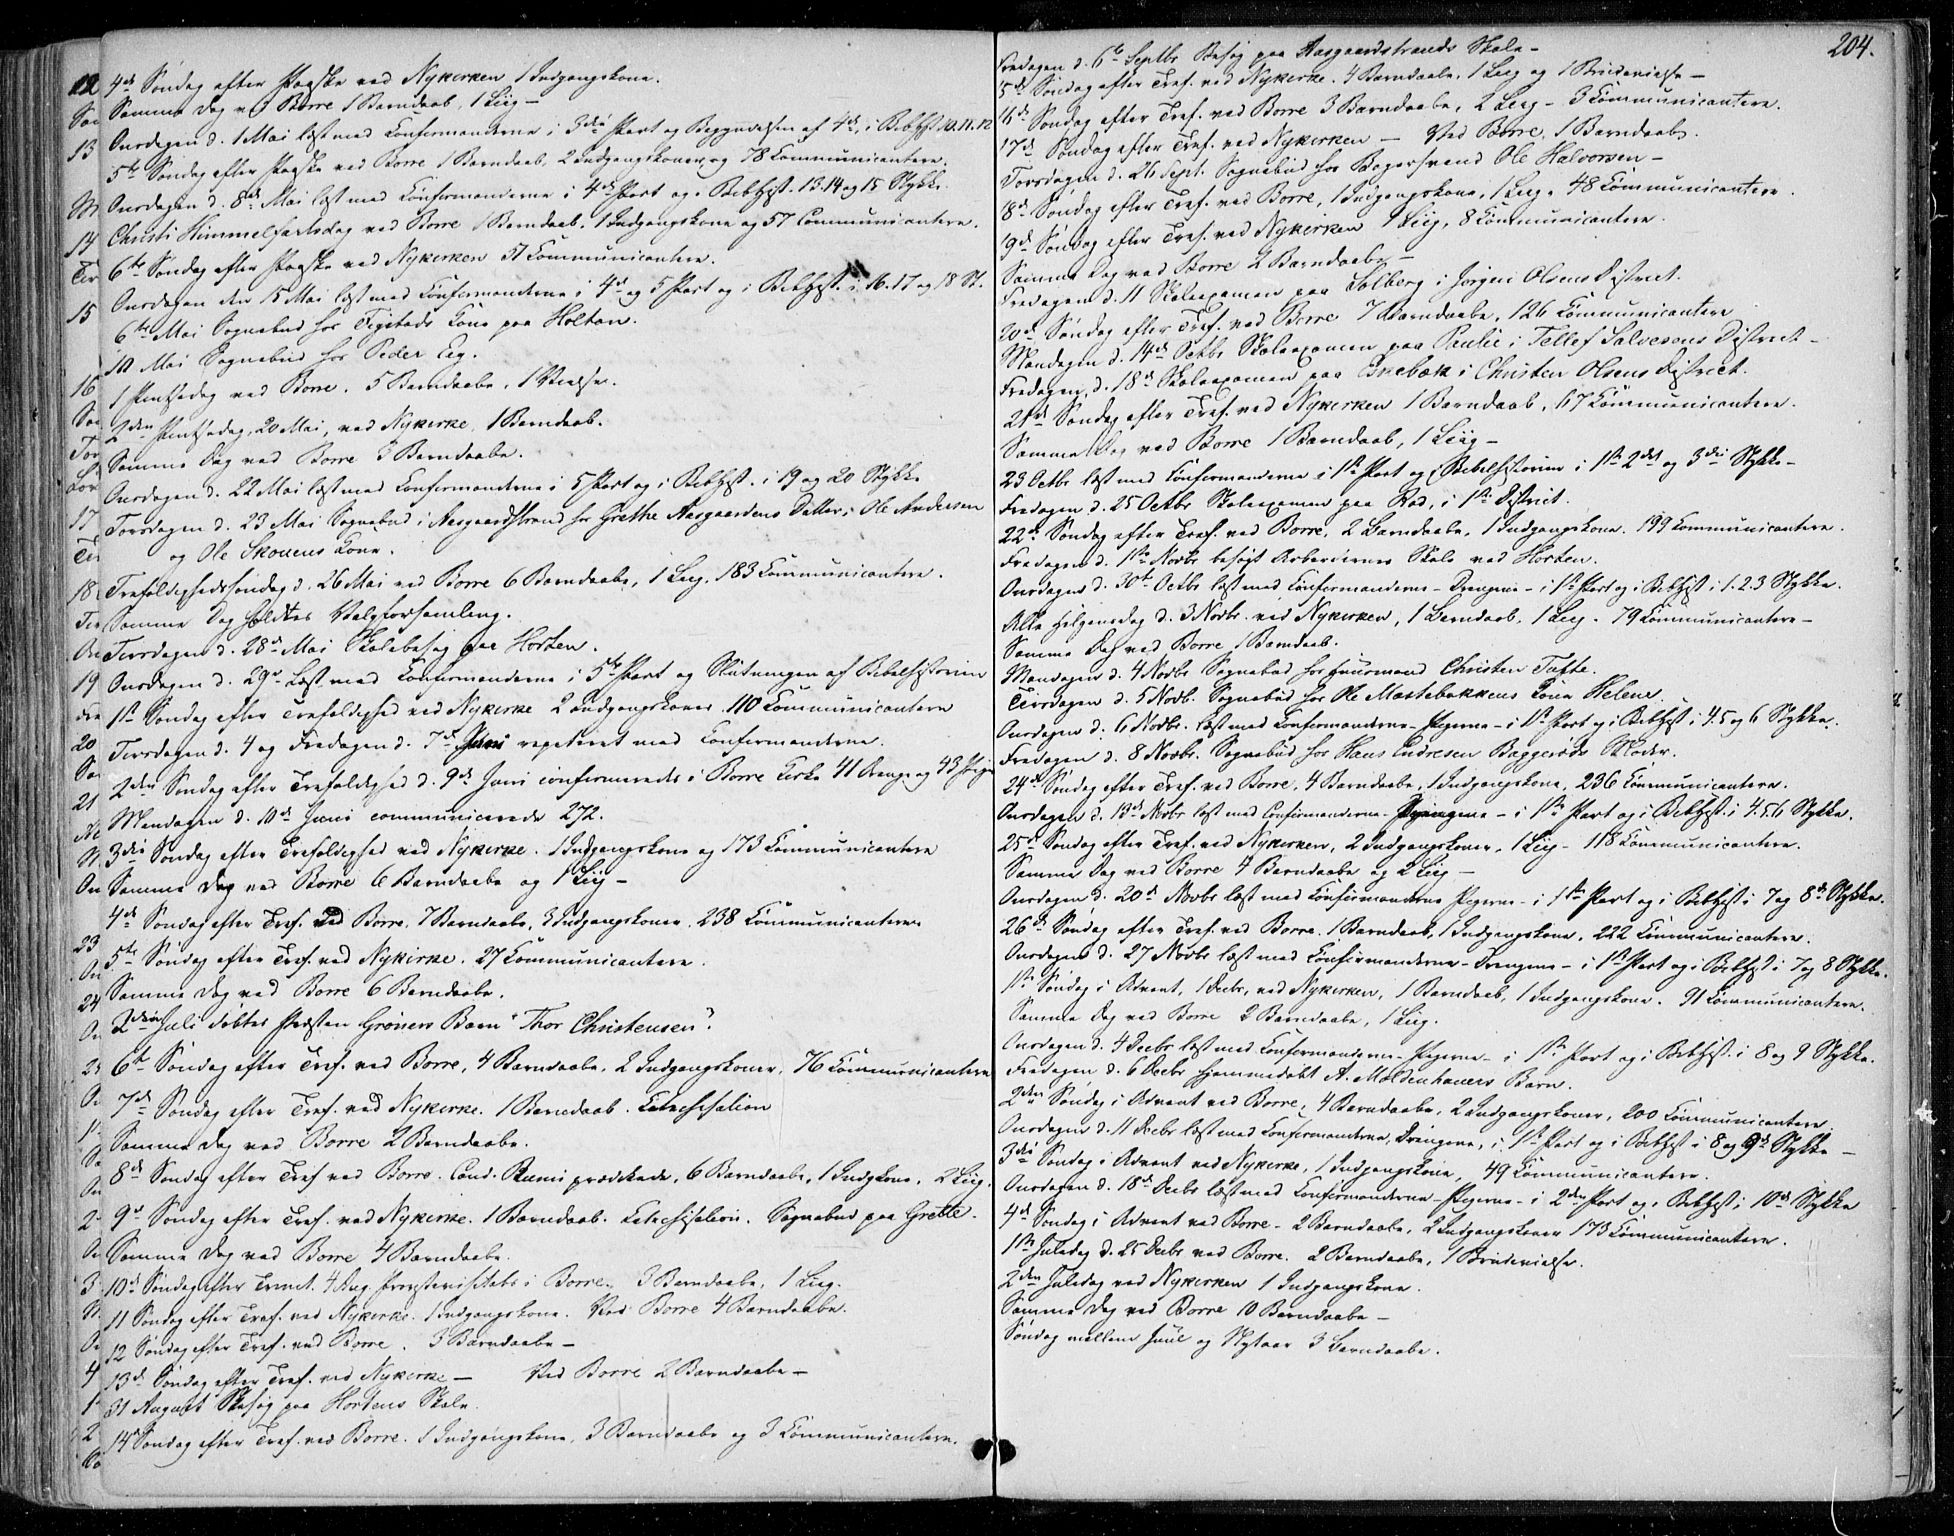 4de Søndag efter Paaske ved Nykirken 1 Indgangskone.
Samme Dag ved Borre 1 Barndaab, 1 Liig –
Onsdagen d. 1 Mai læst med Confirmanderne i 3die Part og Begyndelsen af 4de, i Bibhist. 10.11.12
5te Søndag efter Paaske ved Borre 1 Barndaab, 2 Indgangskoner, og 78 Communicantere.
Onsdagen d. 8de Mai læst med Confirmanderne i 4de Part og Bibhist. 13.14 og 15 Stykke.
Christi Himmelfartsdag ved Borre 1 Barndaab, 1 Indgangskone og 57 Communicantere.
6te Søndag efter Paaske ved Nykirken 51 Communicantere.
Onsdagen den 15 Mai læst med Confirmanderne i 4de og 5 Part og i Bibhist. i 16. 17 og 18 St.
6te Mai Sognebud hos Tigstads Kone paa Holtan.
10 Mai Sognebud hos Peder Eeg.
1 Pintsedag ved Borre. 5 Barndaabe, 1 Vielse.
2den Pintsedag, 20 Mai, ved Nykirke, 1 Barndaab.
Samme Dag ved Borre 3 Barndaabe.
Onsdagen d. 22 Mai læst med Confirmanderne i 5 Part og i Bibhist. i 19 og 20 Stykke
Torsdagen d. 23 Mai Sognebud i Aasgaardstrand hos Grethe Aasgaardens Datter, Ole Andersen
og Ole Skouens Kone.
Trefoldighedssøndag d. 26 Mai ved Borre 6 Barndaabe, 1 Liig. 183 Communicantere.
Samme Dag holdtes Valgforsamling.
Tirsdagen d. 28de Mai Skolebesøg paa Horten.
Onsdagen d. 29de Læst med Confirmanderne i 5te Part og Slutningen af Bibelhistorien
1ste Søndag efter Trefoldighed ved Nykirke 2 Indgangskoner 110 Communicantere
Tirsdagen d. 4 og Fredagen d. 7de Juni repeteret med Confirmanderne.
2den Søndag efter Trefoldighed d. 9de Juni confirmeredes i Borre Kirke 41 Drenge og 43 Piger
Mandagen d. 10de Juni communicerede 272.
3die Søndag efter Trefoldighed ved Nykirke. 1 Indgangskone og 173 Communicantere
Samme Dag ved Borre 6 Barndaabe og 1 Liig –
4de Søndag efter Tref. ved Borre, 7 Barndaabe, 3 Indgangskoner, 238 Communicantere
5te Søndag efter Tref. ved Nykirke. 27 Communicantere.
Samme Dag ved Borre 6 Barndaabe.
2den Juli døbtes Præsten Grøners Barn "Thor Christensen".
6te Søndag efter Tref. ved Borre, 4 Barndaabe, 2 Indgangskoner, 76 Communicantere
7de Søndag efter Tref. ved Nykirke. 1 Barndaab. Catechisation
Samme Dag ved Borre 2 Barndaabe.
8de Søndag efter Tref ved Borre. Cand. prædikede, 6 Barndaabe, 1 Indgkone, 2 Liig.
9de Søndag efter Tref. ved Nykirke. 1 Barndaab. Catechisation. Sognebud paa Grette.
Samme Dag ved Borre 4 Barndaabe.
10de Søndag efter Trinit. 4 Aug. Provstevisitats i Borre. 3 Barndaabe, 1 Liig.
11 Søndag efter Tref. ved Nykirke. 1 Indgangskone. Ved Borre 4 Barndaabe.
12 Søndag efter Tref. ved Borre. 3 Barndaabe –
13de Søndag efter Tref. ved Nykirke – Ved Borre 2 Barndaabe –
31 August Besøg paa Hortens Skole.
14 Søndag efter Tref. ved Borre. 1 Indgangskone, 3 Barndaabe og 3 Communicantere.
204.
Fredagen d. 6te Septbr Besøg paa Aasgaardstrands Skole –
15de Søndag efter Tref. ved Nykirke. 4 Barndaabe, 1 Liig og 1 Brudevielse –
16de Søndag efter Tref. ved Borre 3 Barndaabe, 2 Liig – 3 Communicantere.
17de Søndag efter Tref. ved Nykirken – Ved Borre, 1 Barndaab.
Torsdagen d. 26 Sept. Sognebud hos Bagersvend Ole Halvorsen –
18de Søndag efter Tref. ved Borre, 1 Indgangskone, 1 Liig. 48 Communicantere.
19de Søndag efter Tref. ved Nykirken 1 Liig, 8 Communicantere.
Samme Dag ved Borre 2 Barndaabe –
Fredagen d. 11 Skoleexamen paa Solberg i Jørgen Olsens District.
20de Søndag efter Tref. ved Borre 7 Barndaabe, 126 Communicantere
Mandagen d. 14de Octbr Skoleexamen paa i Tellef Salvesons District –
Fredagen, d. 18de Skoleexamen paa i Christen Olsens District.
21de Søndag efter Tref. ved Nykirken 1 Barndaab, 67 Communicantere.
Samme Dag ved Borre 1 Barndaab, 1 Liig –
23 Octbr læst med Confirmanderne i 1ste Part og Bibelhistorien i 1ste 2det og 3die Stykke –
Fredagen d. 25 Octbr Skoleexamen paa Rød, i 1ste District.
22de Søndag efter Tref. ved Borre, 2 Barndaabe, 1 Indgangskone. 199 Communicantere.
Fredagen d. 1ste Novbr besøgt Arbeidernes Skole ved Horten.
Onsdagen d. 30te Octbr læst med Confirmanderne – Drengene – i 1ste Part og i Bibhist i 1. 2. 3 Stykke.
Alle Helgensdag d. 3 Novbr. ved Nykirken, 1 Barndaab, 1 Liig – 79 Communicantere –
Samme Dag ved Borre 1 Barndaab.
Mandagen d. 4 Novbr Sognebud hos Huusmand Christen Tufte.
Tirsdagen d. 5 Novb. Sognebud hos Ole Mastebakkens Kone Helene.
Onsdagen d. 6 Novbr. læst med Confirmanderne – Pigerne – i 1ste Part og i Bibhist i 4. 5 og 6 Stykke.
Fredagen d. 8 Novbr. Sognebud hos Hans Endresen Baggerøds Moder.
24de Søndag efter Tref. ved Borre, 4 Barndaabe, 1 Indgangskone, 236 Communicantere.
Onsdagen d. 13de Novbr læst med Confirmanderne – Drengene – i 1ste Part og i Bibhist i 4. 5. 6 Stykke.
25de Søndag efter Tref. ved Nykirken, 2 Indgangskoner, 1 Liig – 118 Communicantere.
Samme Dag ved Borre 4 Barndaabe og 2 Liig –
Onsdagen d. 20de Novbr læst med Confirmanderne Pigerne – i 1ste Part og i Bibhist i 7 og 8de Stykke.
26de Søndag efter Tref. ved Borre. 1 Barndaab, 1 Indgangskone, 222 Communicantere.
Onsdagen d. 27 Novbr læst med Confirmanderne – Drengene – i 1ste Part og i Bibhist i 7 og 8 Stykke.
1ste Søndag i Advent, 1 Decbr, ved Nykirken, 1 Barndaab, 1 Indgangskone. 91 Communicantere.
Samme Dag ved Borre 2 Barndaabe, 1 Liig.
Onsdagen d. 4 Decbr læst med Confirmanderne – Pigerne – i 1ste Part og i Bibhist. i 8 og 9 Stykke.
Fredagen d. 6 Decbr hjemmedøbt A. Moldenhauers Barn.
2den Søndag i Advent ved Borre, 4 Barndaabe, 2 Indgangskoner, 200 Communicantere.
Onsdagen d. 11 Decbr læst med Confirmanderne, Drengene, i 1ste Part og i Bibhist i 8 og 9de Stykke –
3die Søndag i Advent ved Nykirke, 1 Indgangskone, 49 Communicantere.
Onsdagen d. 18de Decbr læst med Confirmanderne – Pigerne – i 2den Part og i Bibhist, 10de Stykke
4de Søndag i Advent ved Borre – 2 Barndaabe, 2 Indgangskoner 173 Communicantere.
1ste Juledag d. 25 Decbr ved Borre. 2 Barndaabe, 1 Brudevielse.
2den Juledag ved Nykirken 1 Indgangskone.
Samme Dag ved Borre 10 Barndaabe –
Søndag mellem Juul og Nytaar 3 Barndaabe.